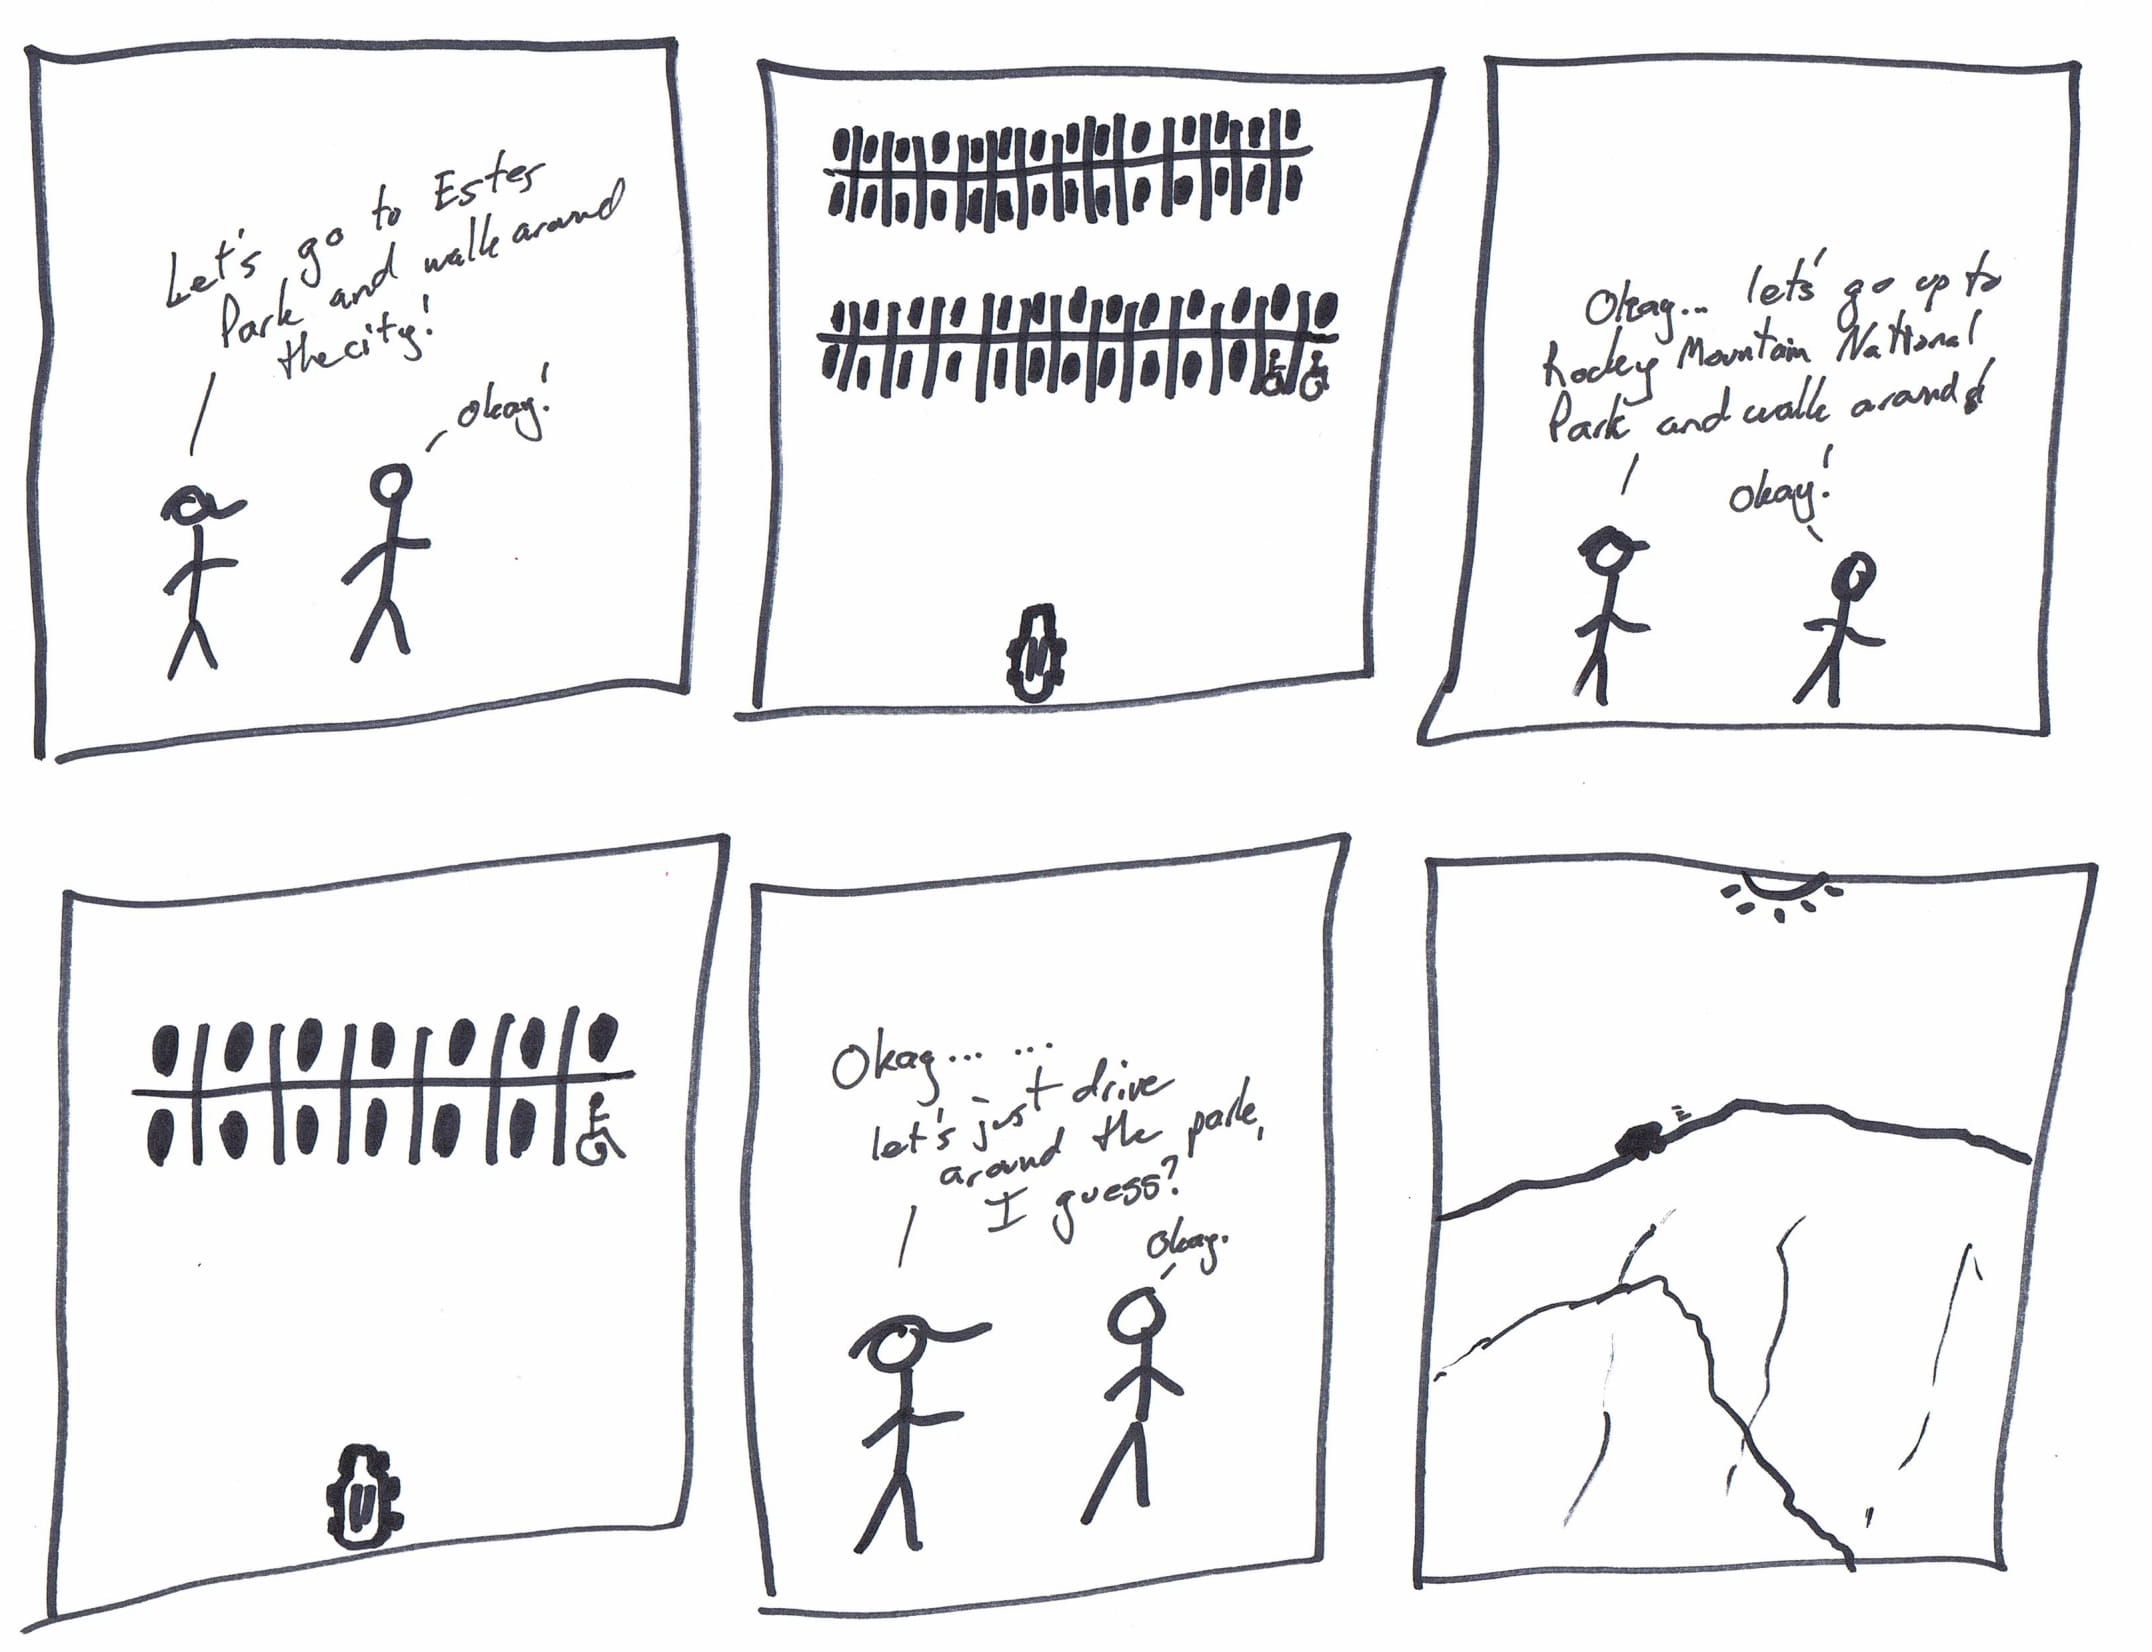 Let's go to Estes
Park and walk around
the city!
okay!
Okay... let's go up to
Rocky Mountain National
Park and walk around!
Okay!
Okay... ...
let's just drive
around the park,
I guess?
Okay.